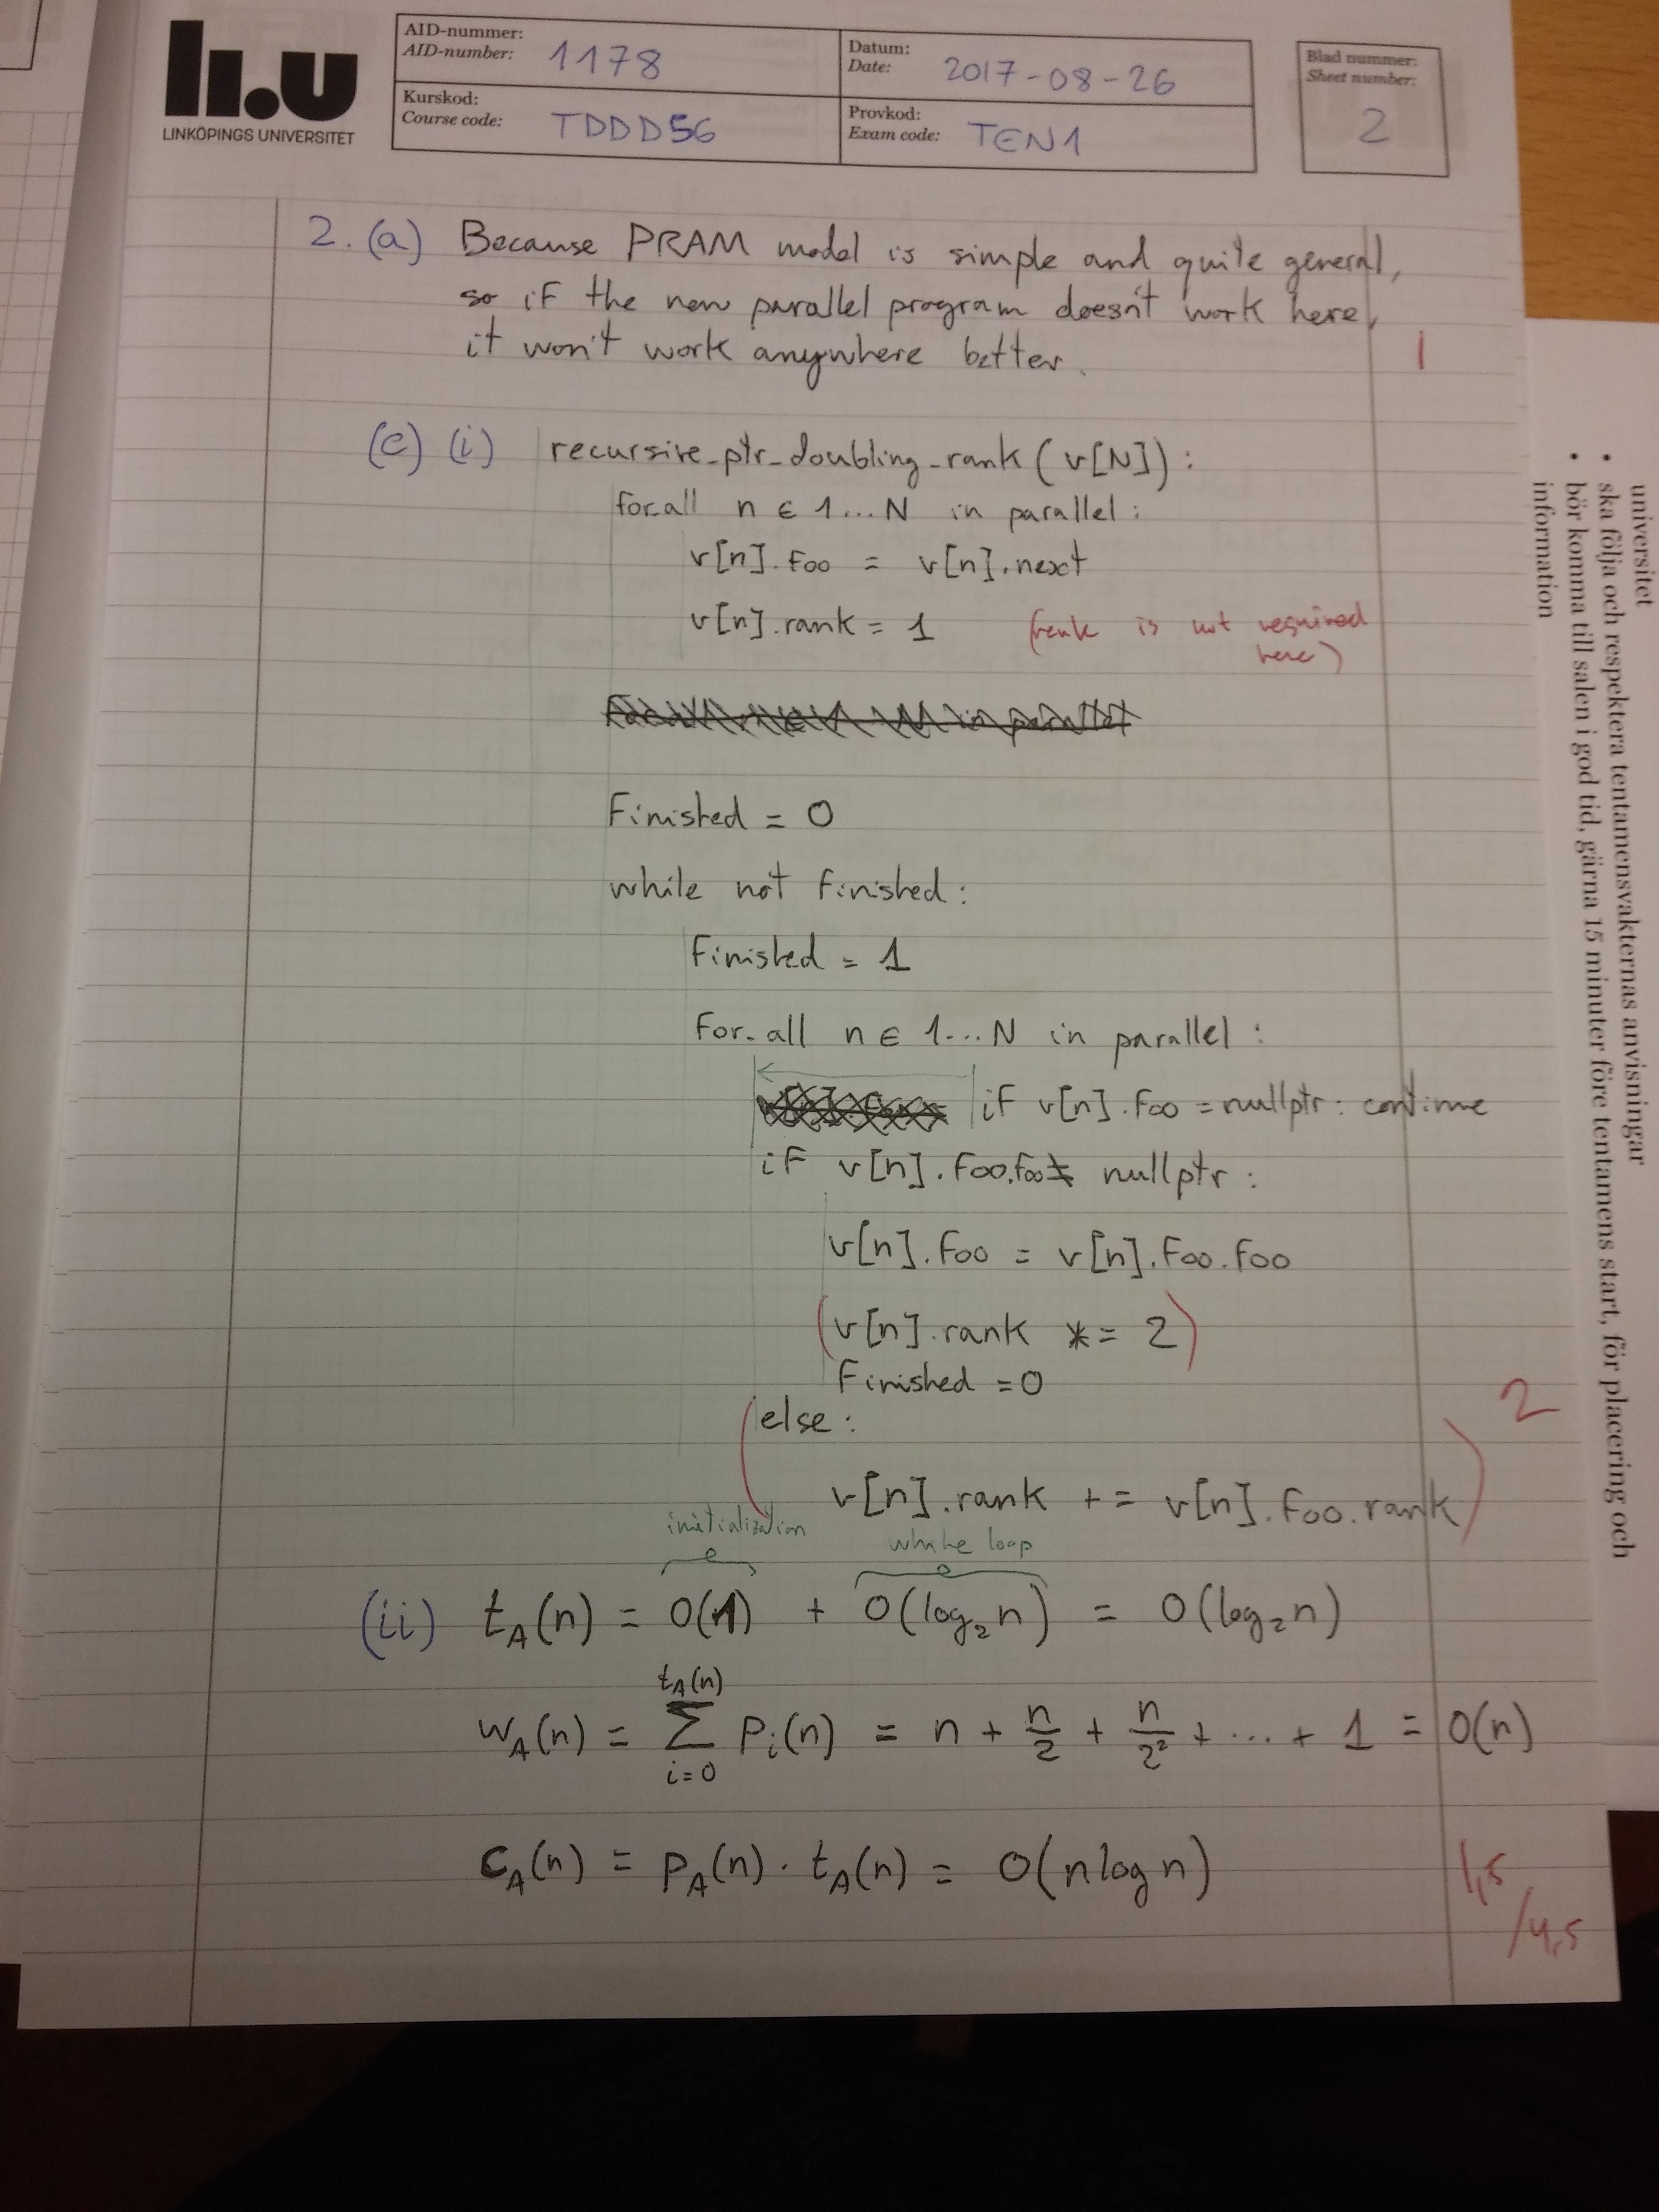 li.u
LINKÖPINGS UNIVERSITET
AID-nummer:
AID-number: 1178
Datum:
Date: 2017-08-26
Kurskod:
Course code: TDDD56
Provkod:
Exam code: TEN1
Blad nummer:
Sheet number:
2
2. (a) Because PRAM model is simple and quite general,
so if the new parallel program doesn't work here,
it won't work anywhere better.
1
(c) (i) recursive_ptr_doubling_rank (v[N]):
for_all n ∈ 1...N in parallel:
v[n].foo = v[n].next
v[n].rank = 1 (rank is not required
here)
Finished = 0
while not finished:
Finished = 1
for_all n ∈ 1...N in parallel:
if v[n].foo = nullptr: continue
if v[n].foo.foo ≠ nullptr:
v[n].foo = v[n].foo.foo
(v[n].rank *= 2)
Finished = 0
(else:
v[n].rank += v[n].foo.rank)
2
initialization
while loop
(ii) t_A(n) = O(1) + O(log₂n) = O(log₂n)
t_A(n)
w_A(n) = Σ p_i(n) = n + n/2 + n/2² + ... + 1 = O(n)
i=0
c_A(n) = p_A(n) · t_A(n) = O(n log n)
1,5
/4,5
universitet
• ska följa och respektera tentamensvakternas anvisningar
• bör komma till salen i god tid, gärna 15 minuter före tentamens start, för placering och
information